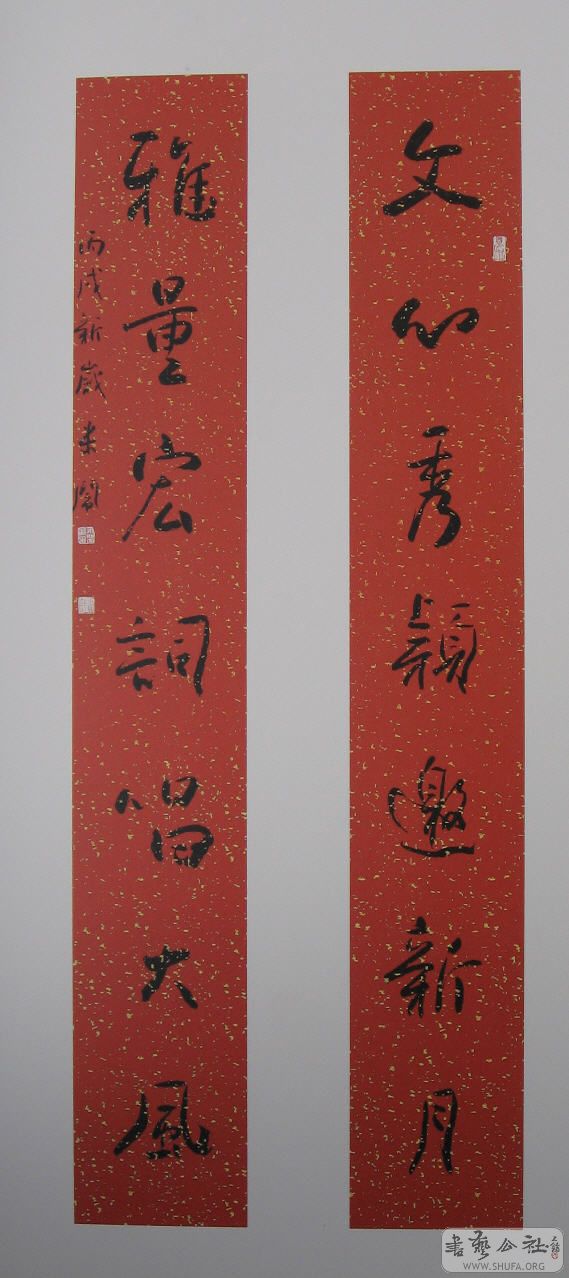 文心秀颖邀新月
雅量宏詞唱大風
丙戌新歲
書藝公社
WWW.SHUFA.ORG